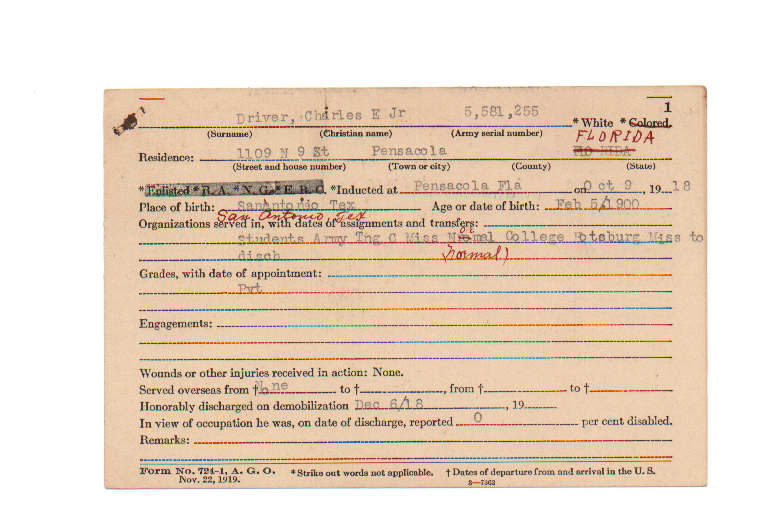 1
Driver, Charles E Jr 5,581,255 * White * Colored.
(Surname) (Christian name) (Army serial number) FLORIDA
Residence: 1109 N 9 St Pensacola
(Street and house number) (Town or city) (County) (State)
*Enlisted *R. A. *N. G. *E. R. C. *Inducted at Pensacola Fla on Oct 9, 1918
Place of birth: Sanantonio Tex Age or date of birth: Feb 5/1900
San Antonio Tex
Organizations served in, with dates of assignments and transfers:
Students Army Tng C Miss Normal College Hotsburg Miss to
disch (normal)
Grades, with date of appointment:
Pvt
Engagements:
Wounds or other injuries received in action: None.
Served overseas from † None to †, from † to †
Honorably discharged on demobilization Dec 6/18, 19
In view of occupation he was, on date of discharge, reported 0 per cent disabled.
Remarks:
Form No. 724-1, A. G. O. *Strike out words not applicable. † Dates of departure from and arrival in the U. S.
Nov. 22, 1919. 3—7362